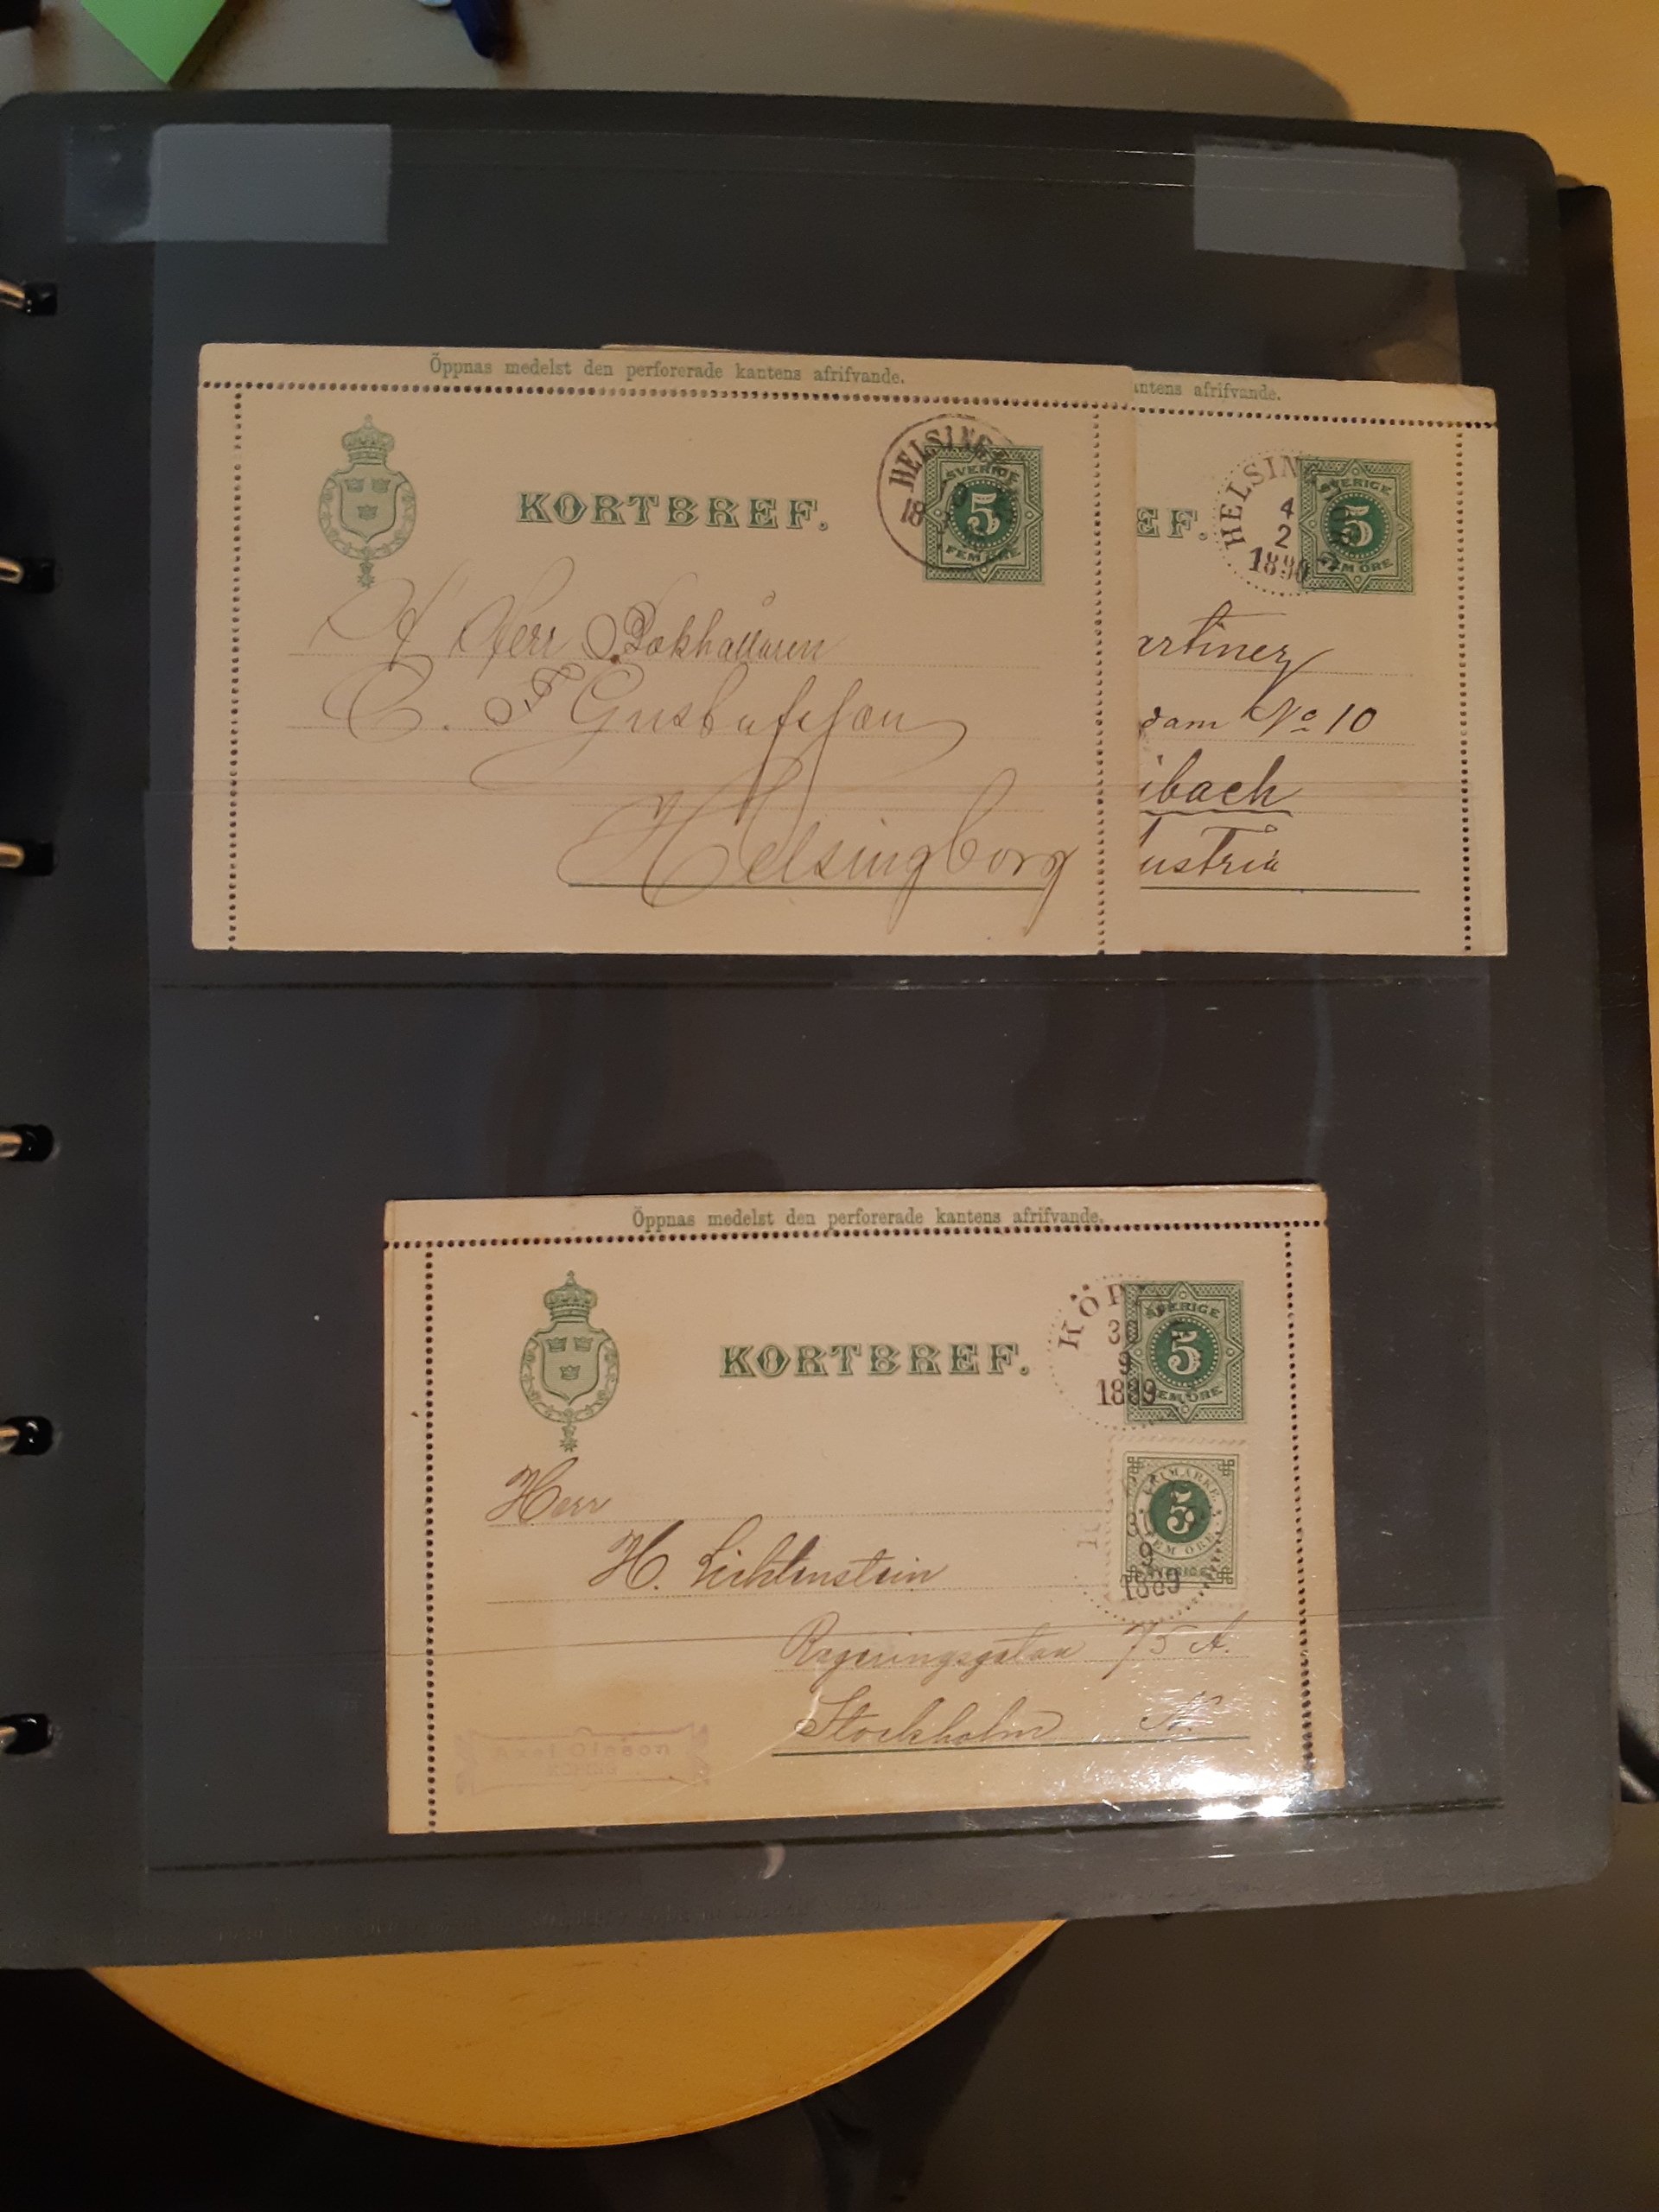 Öppnas medelst den perforerade kantens afrifvande.
KORTBREF.
HELSING
18
SVERIGE
5
FEM ÖRE
Herr Bokhållaren
C. F. Gustafsson
Helsingborg
ntens afrifvande.
EF.
HELSIN
4
2
1890
SVERIGE
5
FEM ÖRE
artinez
dam No 10
ibach
ustria
Öppnas medelst den perforerade kantens afrifvande.
KORTBREF.
KÖP
9
1889
SVERIGE
5
FEM ÖRE
FRIMÄRKE
5
FEM ÖRE
SVERIGE
9
1889
Herr
H. Lichtenstein
Regeringsgatan 75 A.
Stockholm N.
Axel Olsson
KÖPING